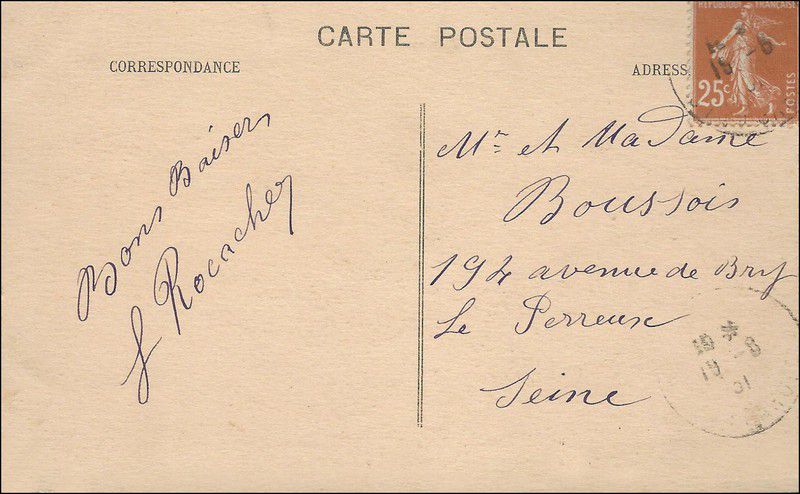 CARTE POSTALE
CORRESPONDANCE
ADRESS
RÉPUBLIQUE FRANÇAISE
25c
POSTES
Bons Baisers
f Rocacher
Mr et Madame
Boussois
194 avenue de Bry
Le Perreux
Seine
19 -8
31